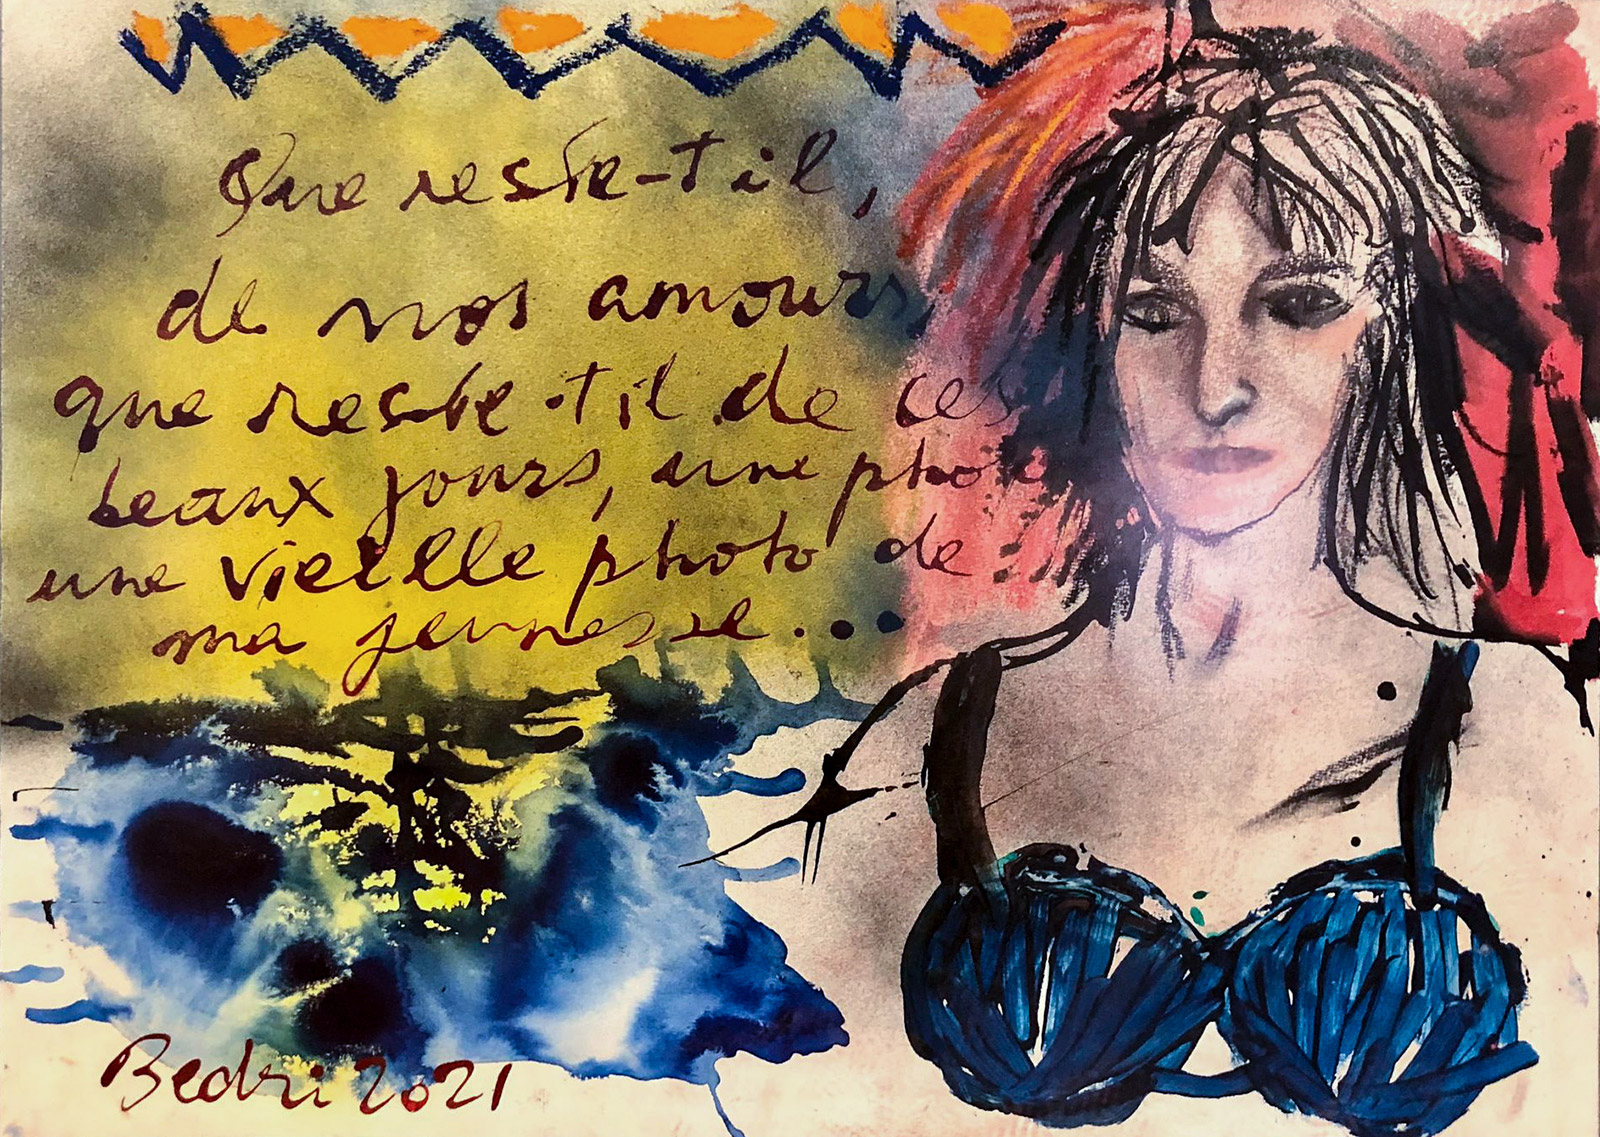 Que reste-t il,
de nos amours,
que reste-til de ces
beaux jours, une photo
une vieille photo de
ma jeunesse...
Bedri 2021